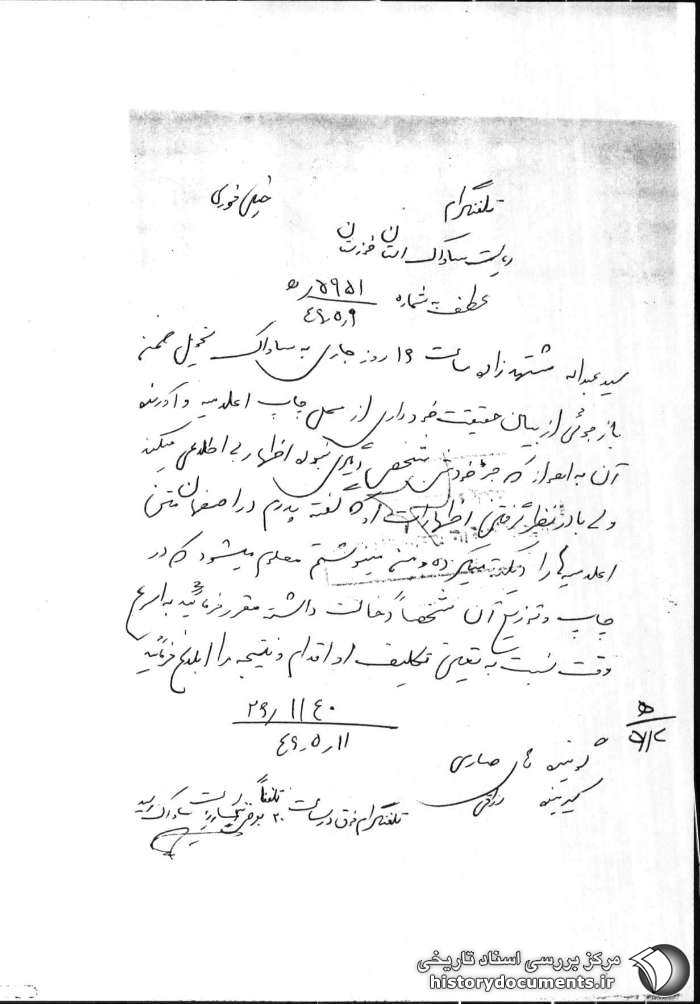 تلفنگرام
خیلی فوری
ریاست ساواک استان خوزستان
عطف به شماره ۵۹۵۱/ﻫ
۴۹٫۵٫۹
سید عبداله مشتهد زاده ساعت ۱۹ روز جاری به ساواک تحویل ضمن
بازجوئی از بیان حقیقت خودداری از محل چاپ اعلامیه و آورنده
آن به اهواز که جز خودش شخص دیگری نبوده اظهار بی اطلاعی میکند
ولی با در نظر گرفتن اظهارات او که گفته پدرم در اصفهان متن
اعلامیه ها را دیکته میکرده و من مینوشتم معلوم میشود که در
چاپ و توزیع آن شخصاً دخالت داشته مقرر فرمائید به اسرع
وقت نسبت به تعیین تکلیف او اقدام و نتیجه را ابلاغ فرمائید
۲۹٫۱۱۴۰
۴۹٫۵٫۱۱
ﻫ
گوینده
گیرنده
تلفنگرام فوق در ساعت ۲۰ تلفناً ریاست ساواک رسید
مرکز بررسی اسناد تاریخی
historydocuments.ir